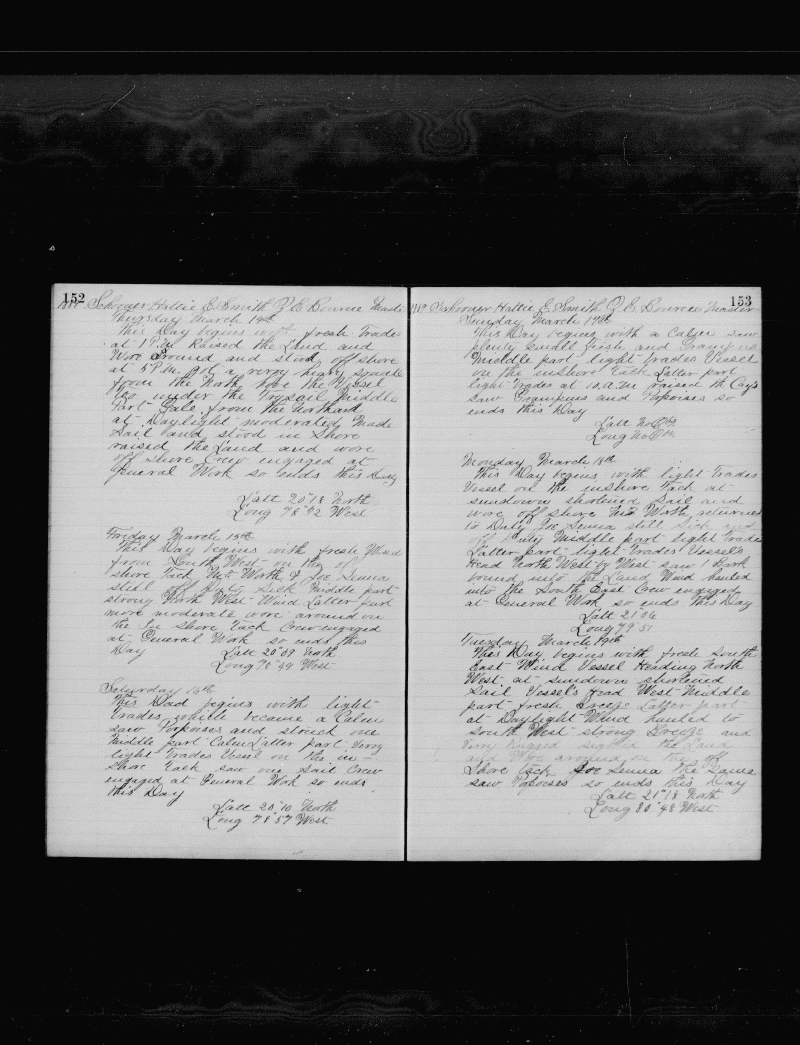 152
Schooner Hattie E Smith J E Bourne Master
Thursday March 14th
This Day begins with fresh Trades
at 1 P.M. Raised the Land and
Wore around and stood off shore
at 5 P.M. got a verry heavy squale
from the North hove the Vessel
too under the Trysail Middle
Part Gale from the Northard
at Daylight moderated Made
Sail and stood in Shore
raised the Land and wore
off Shore Crew engaged at
General Work so ends this Day
Latt 20°18 North
Long 78°42 West
Friday March 15th
This Day begins with fresh Wind
from South West on the of
shore Tack Worth & Joe Senna
still of duty Sick Middle part
strong North West Wind Latter part
more moderate wore around on
the In Shore Tack Crew engaged
at General Work so ends this
Day Latt 20°09 North
Long 78°44 West
Saturday 16th
This Dad begins with light
Trades became a Calm
saw Porpoises and struck one
Middle part Calm Latter part Verry
light Trades Vessel on the in
Shore Tack saw one Sail Crew
engaged at General Work so ends
this Day
Latt 20°10 North
Long 78°57 West
153
1889 Schooner Hattie E Smith J E Bourne Master
Sunday March 17th
This Day begins with a Calm saw
plenty Small Fish and Grampus
Middle part light Trades Vessel
on the inshore Tack Latter part
light Trades at 10 A.M raised th Cay's
saw Grampus and Porpoises so
ends this Day
Latt No Ob
Long No Ob
Monday March 18th
This Day begins with light Trades
Vessel on the inshore Tack at
sundown shortened Sail and
wore off shore Worth returned
to Duty Joe Senna still Sick and
off Duty Middle part light Trades
Latter part light Trades Vessel's
Head North West by West saw 1 Bark
bound into the Land Wind hauled
into the South East Crew engaged
at General Work so ends this Day
Latt 21°06
Long 79°51
Tuesday March 19th
This Day begins with fresh South
East Wind Vessel Heading North
West at sundown shortened
Sail Vessel's Head West Middle
part fresh Breeze Latter part
at Daylight Wind hauled to
South West strong Breeze and
Verry Rugged sighted the Land
and Wore around on the off
Shore Tack Joe Senna the Same
saw Porpoises so ends this Day
Latt 21°18 North
Long 80°48 West